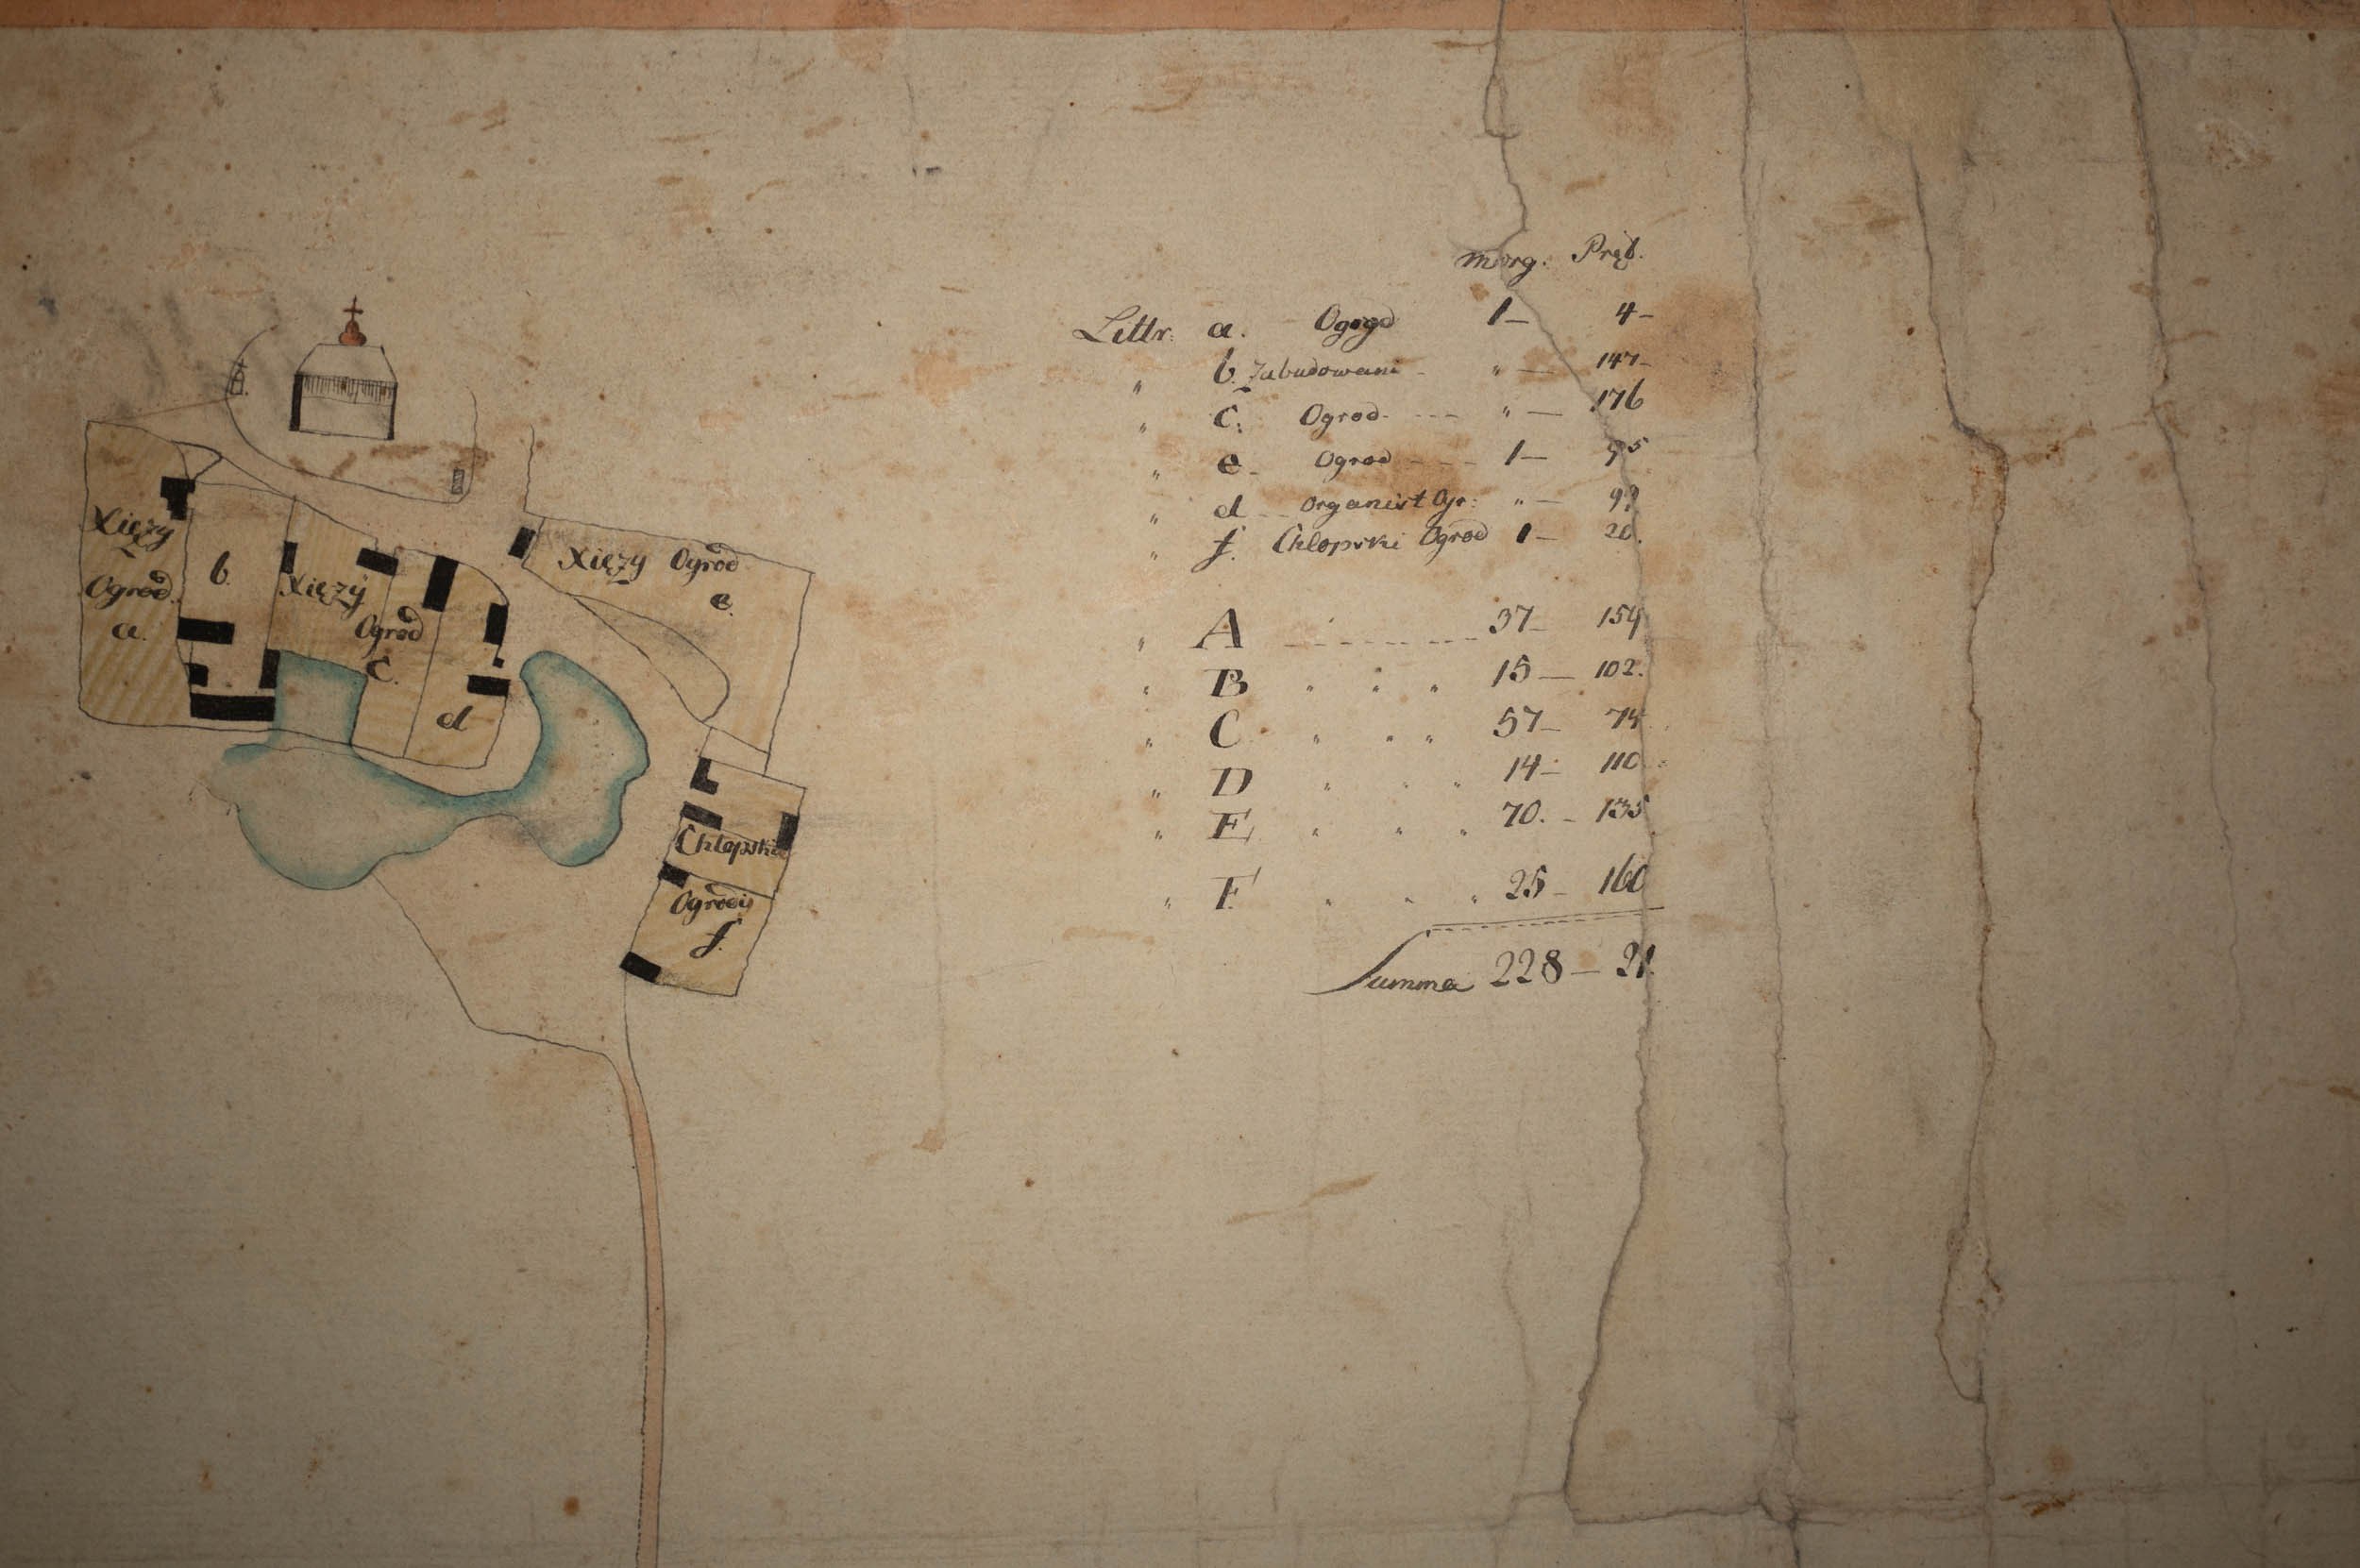 Xięży
Ogrod.
a.
b.
Xięży
Ogrod
C.
d
Xięży Ogrod
e.
Chłopskie
Ogrody
f.
morg. Pręt.
Littr. a. Ogrod 1— 4—
" b. Zabudowani - " — 147-
" c. Ogrod- --- " — 176
" e- Ogrod --- 1— 95
" d -- Organist Ogr: " — 99
" f. Chłopski Ogrod 1— 20.
" A --------- 37— 159
" B . . . 15— 102.
" C . . . 57— 74
" D . . . 14— 110
" E . . . 70. - 135
" F . . . 25— 160
Summa 228— 21.